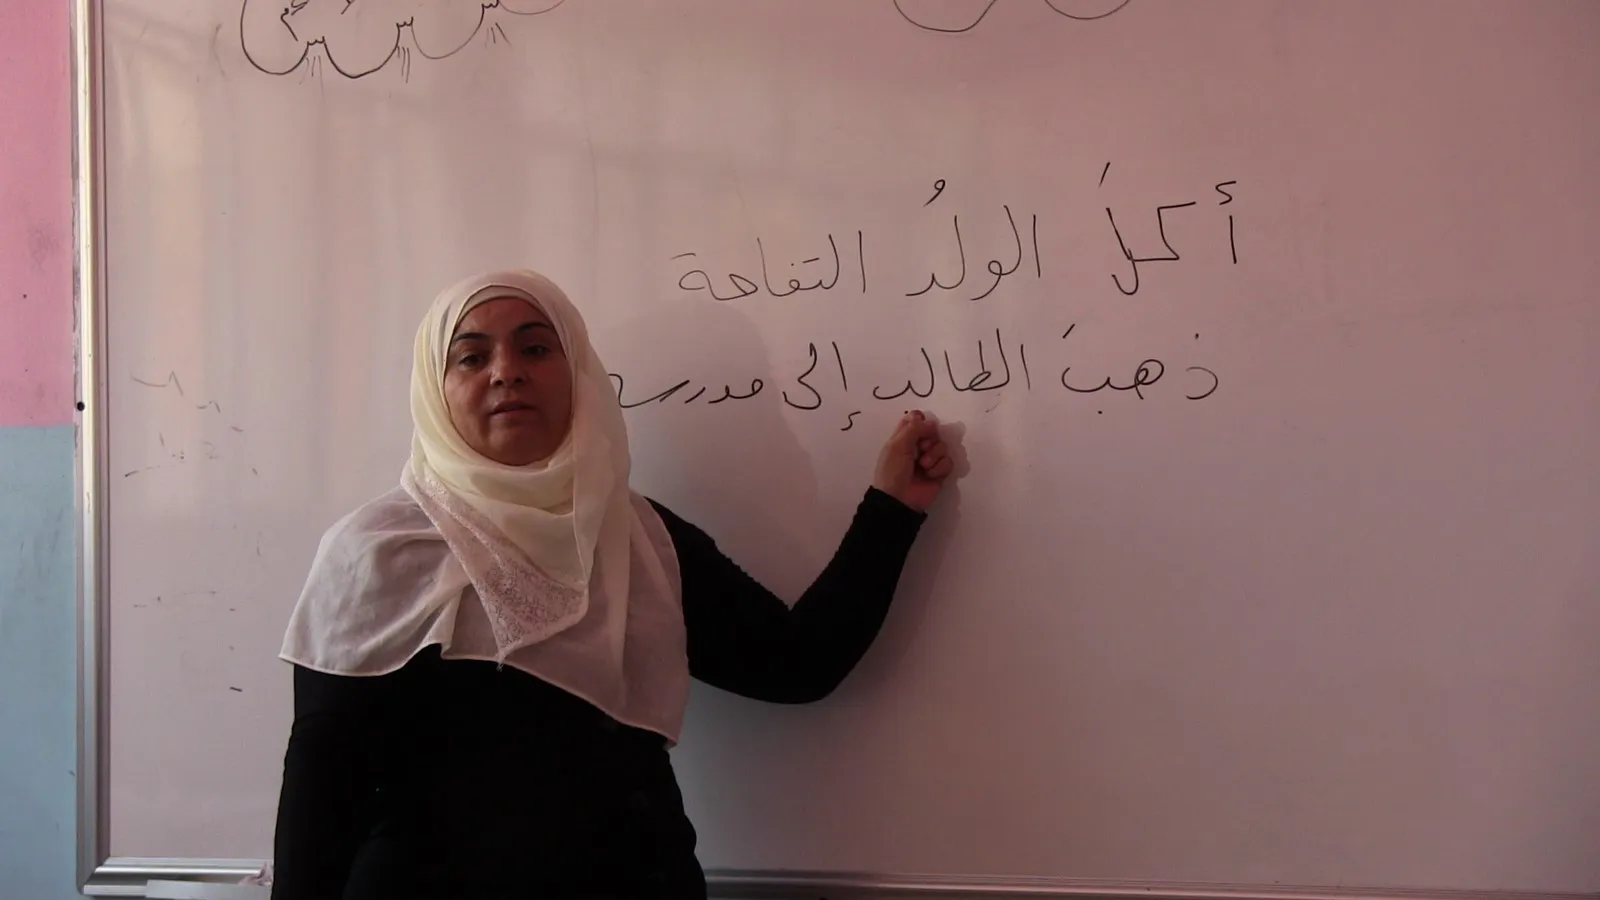 أكلَ الولدُ التفاحة
ذهبَ الطالب إلى مدرسة